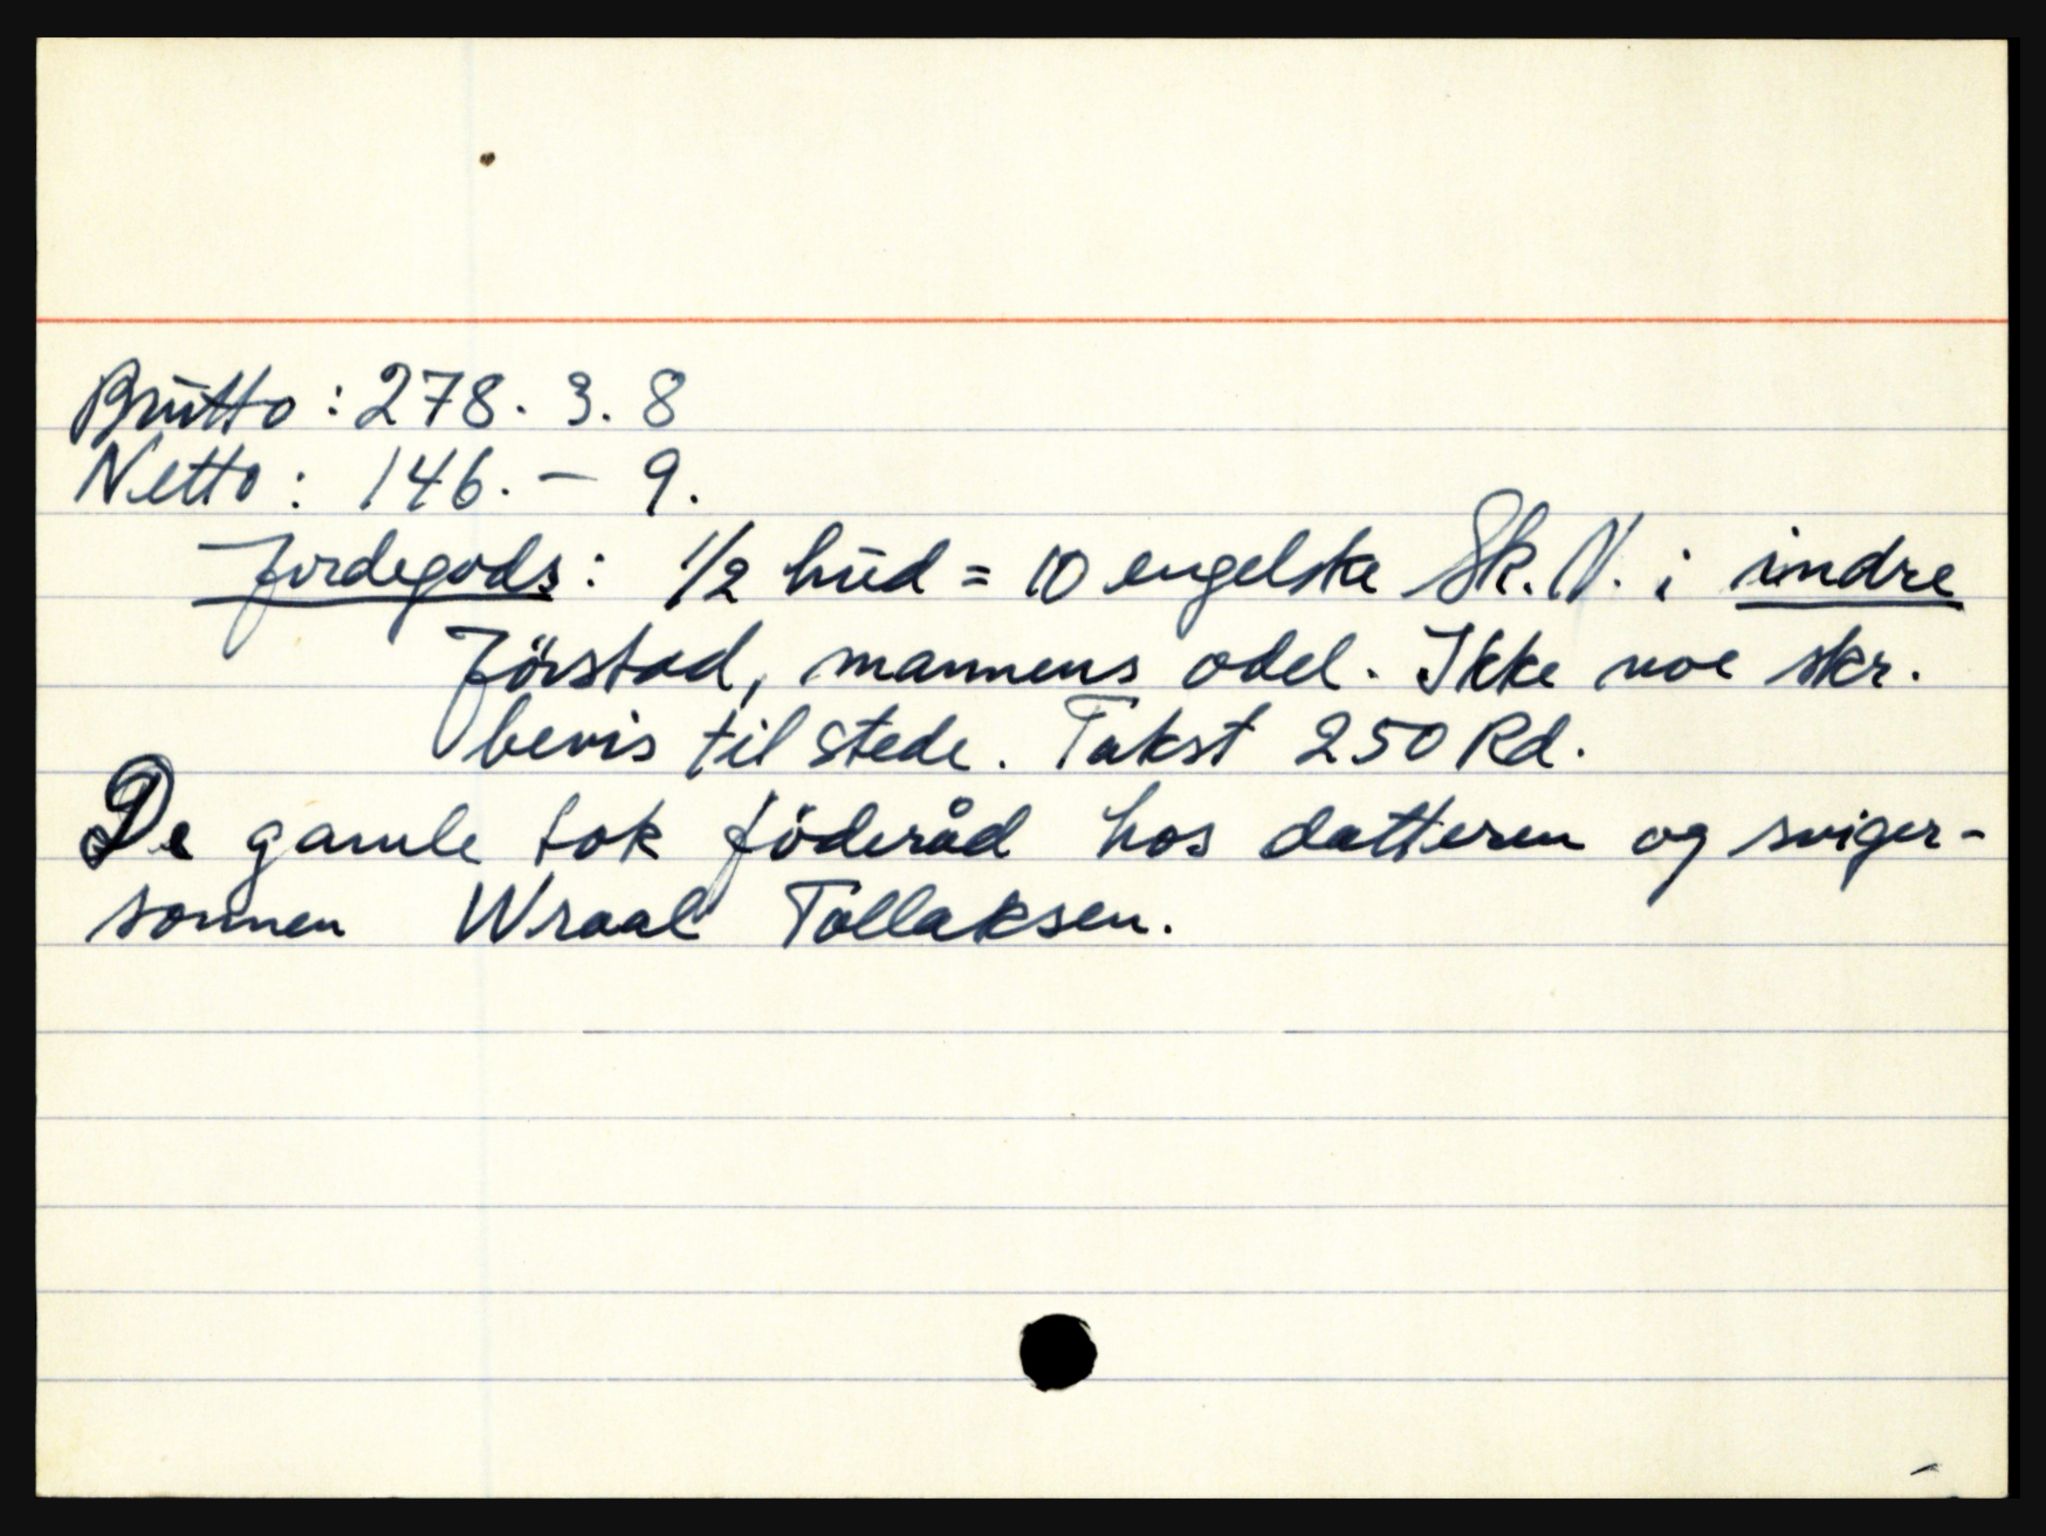 Brutto: 278. 3. 8
Netto: 146. - 9.
Jordegods: 1/2 hud = 10 engelske Sk. N. i indre
Jörstad, mannens odel. Ikke noe skr.
bevis til stede. Takst 250 Rd.
De gamle tok föderåd hos datteren og sviger-
sønnen Wraal Tollaksen.